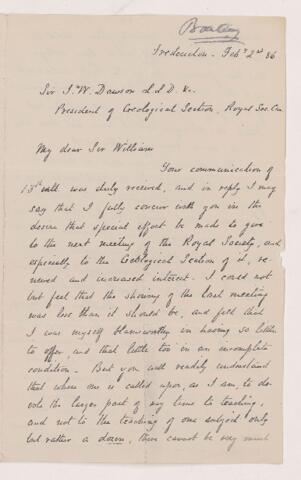 Bailey
Fredericton - Feby 2nd 86
Sir J. W. Dawson L L D. &c.
President of Geological Section, Royal Soc. Can
My dear Sir William
Your communication of
13th ult. was duly received, and in reply I may
say that I fully concur with you in the
desire that special effort be made to give
to the next meeting of the Royal Society, and
especially to the Geological Section of it, re-
newed and increased interest. I could not
but feel that the showing of the last meeting
was less than it should be, and felt that
I was myself blameworthy in having so little
to offer, and that little too in an incomplete
condition. - But you will readily understand
that where one is called upon, as I am, to de-
vote the larger part of my time to teaching,
and not to the teaching of one subject only
but rather a dozen, there cannot be very much